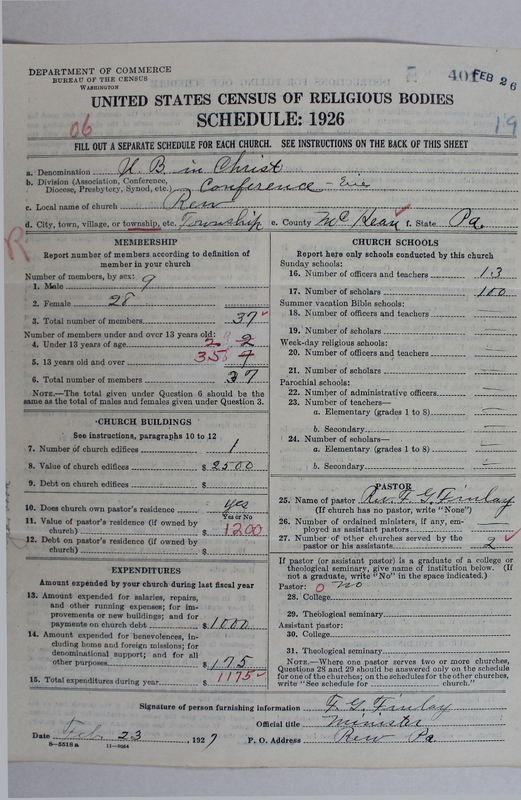 DEPARTMENT OF COMMERCE
BUREAU OF THE CENSUS
WASHINGTON
401 FEB 26
UNITED STATES CENSUS OF RELIGIOUS BODIES
SCHEDULE: 1926
06
19
FILL OUT A SEPARATE SCHEDULE FOR EACH CHURCH. SEE INSTRUCTIONS ON THE BACK OF THIS SHEET
a. Denomination U. B. in Christ
b. Division (Association, Conference, Diocese, Presbytery, Synod, etc.) Conference - Erie
c. Local name of church Rew
d. City, town, village, or township, etc. Township e. County McKean f. State Pa.
R
MEMBERSHIP
Report number of members according to definition of
member in your church
Number of members, by sex:
1. Male 9
2. Female 28
3. Total number of members 37
Number of members under and over 13 years old:
4. Under 13 years of age 2
5. 13 years old and over 35
6. Total number of members 37
NOTE.—The total given under Question 6 should be
same as the total of males and females given under Question 3.
CHURCH BUILDINGS
See instructions, paragraphs 10 to 12
7. Number of church edifices 1
8. Value of church edifices $ 2500
9. Debt on church edifices $
10. Does church own pastor's residence? yes
Yes or No
11. Value of pastor's residence (if owned by
church) $ 1200
12. Debt on pastor's residence (if owned by
church) $
EXPENDITURES
Amount expended by your church during last fiscal year
13. Amount expended for salaries, repairs,
and other running expenses; for im-
provements or new buildings; and for
payments on church debt $ 1000
14. Amount expended for benevolences, in-
cluding home and foreign missions; for
denominational support; and for all
other purposes $ 175
15. Total expenditures during year $ 1175
CHURCH SCHOOLS
Report here only schools conducted by this church
Sunday schools:
16. Number of officers and teachers 13
17. Number of scholars 100
Summer vacation Bible schools:
18. Number of officers and teachers —
19. Number of scholars —
Week-day religious schools:
20. Number of officers and teachers —
21. Number of scholars —
Parochial schools:
22. Number of administrative officers —
23. Number of teachers—
a. Elementary (grades 1 to 8) —
b. Secondary —
24. Number of scholars—
a. Elementary (grades 1 to 8) —
b. Secondary —
PASTOR
25. Name of pastor Rev. F. G. Finlay
(If church has no pastor, write "None")
26. Number of ordained ministers, if any, em-
ployed as assistant pastors
27. Number of other churches served by the
pastor or his assistants 2
If pastor (or assistant pastor) is a graduate of a college or
theological seminary, give name of institution below. (If
not a graduate, write "No" in the space indicated.)
Pastor: 0 No
28. College
29. Theological seminary
Assistant pastor:
30. College
31. Theological seminary
NOTE.—Where one pastor serves two or more churches,
Questions 28 and 29 should be answered only on the schedule
for one of the churches; on the schedules for the other churches,
write "See schedule for church."
Signature of person furnishing information F. G. Finlay
Official title Minister
Date Feb. 23, 1927 P. O. Address Rew Pa.
8—5518a 11—9064